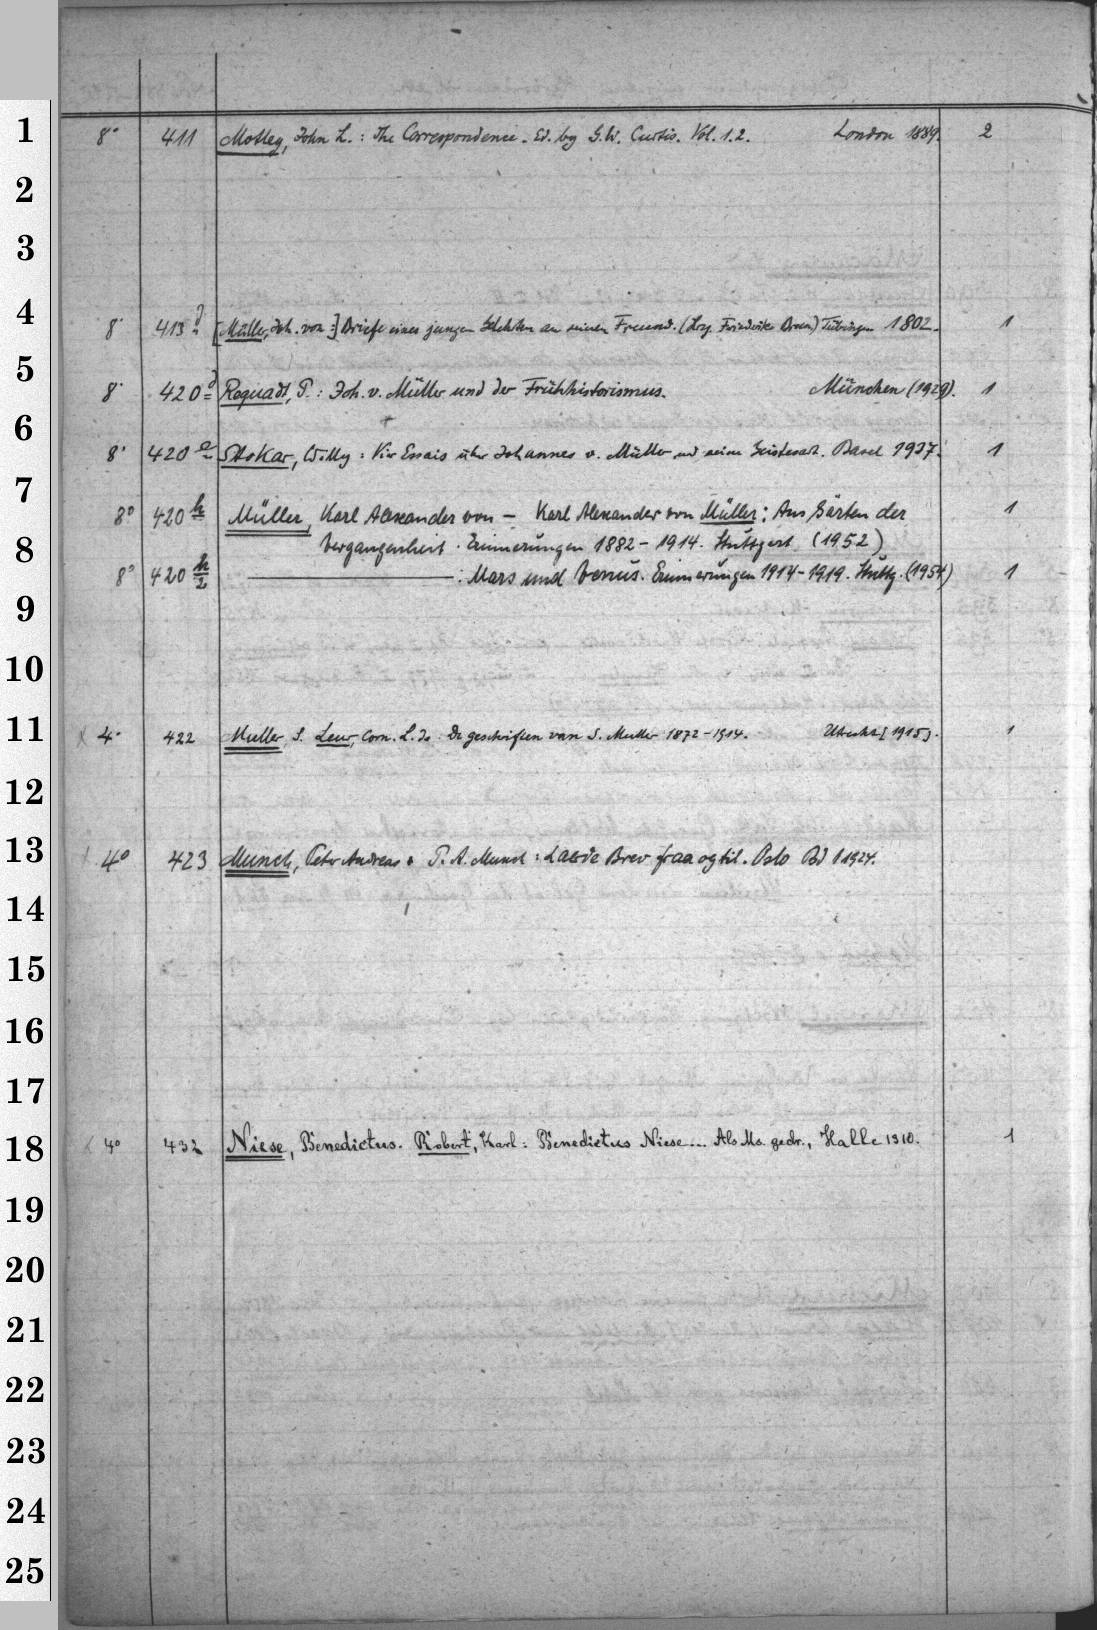 1
8° 411 Motley, John L.: The Correspondence. Ed. by G.W. Curtis. Vol. 1.2. London 1889. 2
2
3
4
8° 413 [Müller, Joh. von:] Briefe eines jungen Gelehrten an seinen Freund. (Hrg. Friederike Brun) Tübingen 1802. 1
5
8° 420 Requadt, P.: Joh. v. Müller und der Frühhistorismus. München (1929). 1
6
8° 420 e Stokar, Willy: Vier Essais über Johannes v. Müller und seine Geistesart. Basel 1937. 1
7
8° 420 h Müller, Karl Alexander von – Karl Alexander von Müller: Aus Gärten der 1
8
Vergangenheit. Erinnerungen 1882–1914. Stuttgart (1952)
8° 420 h/2 : Mars und Venus. Erinnerungen 1914–1919. Stuttg. (1954) 1
9
10
11
x 4° 422 Muller, S. Leur, Corn. L. de: De geschriften van S. Muller 1872–1914. Utrecht [1915]. 1
12
13
4° 423 Munch, Peter Andreas. P. A. Munch: Laerde Brev fraa og til. Oslo Bd 1 1924.
14
15
16
17
18
4° 432 Niese, Benedictus. Robert, Karl: Benedictus Niese... Als Ms. gedr., Halle 1910. 1
19
20
21
22
23
24
25